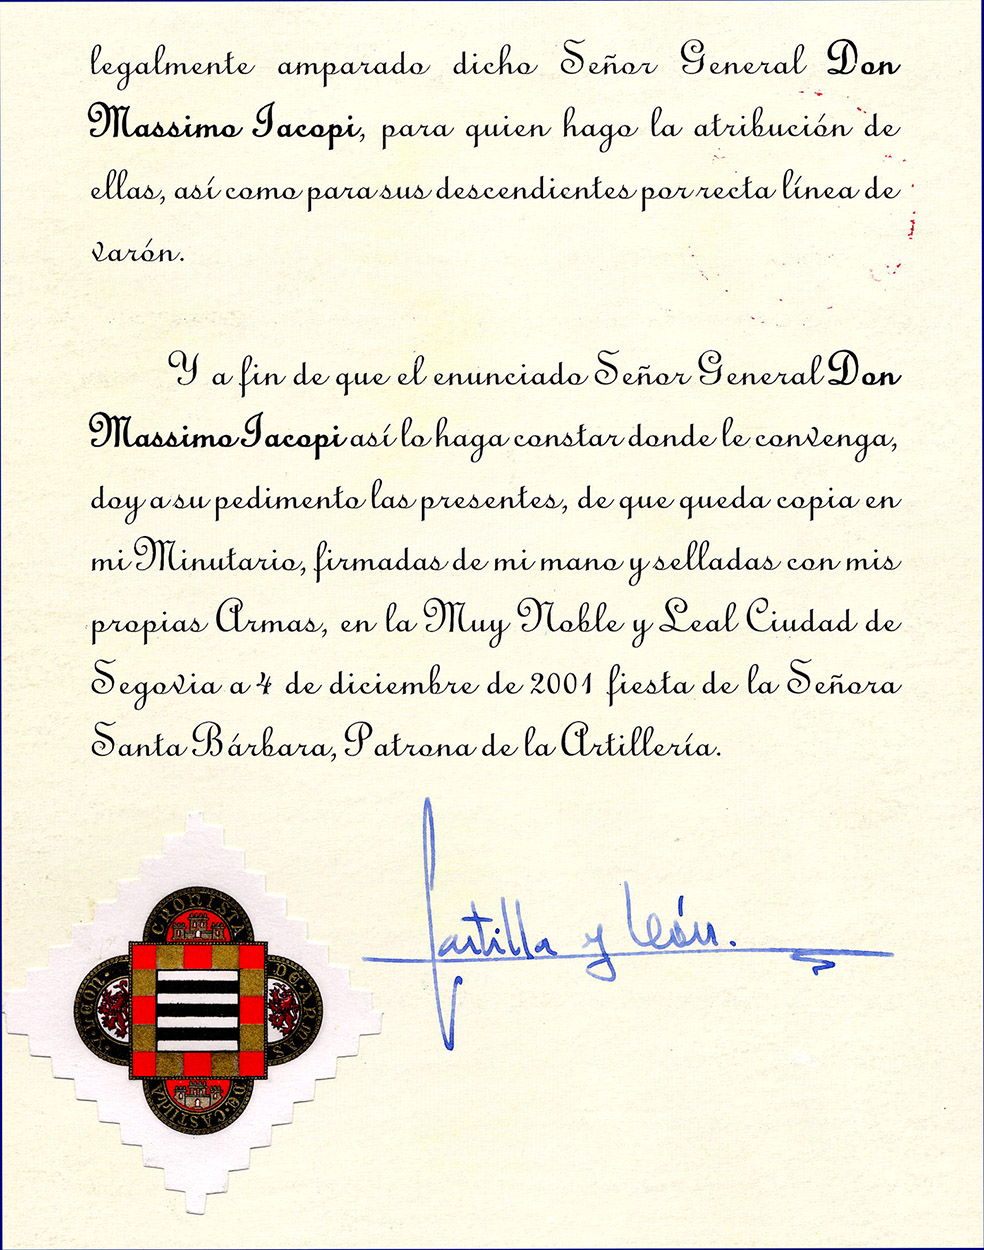 legalmente amparado dicho Señor General Don
Massimo Iacopi, para quien hago la atribución de
ellas, así como para sus descendientes por recta línea de
varón.
Y a fin de que el enunciado Señor General Don
Massimo Iacopi así lo haga constar donde le convenga,
doy a su pedimento las presentes, de que queda copia en
mi Minutario, firmadas de mi mano y selladas con mis
propias Armas, en la Muy Noble y Leal Ciudad de
Segovia a 4 de diciembre de 2001 fiesta de la Señora
Santa Bárbara, Patrona de la Artillería.
Castilla y León.
CRONISTA
DE·ARMAS
DE·CASTILLA
Y·LEON·